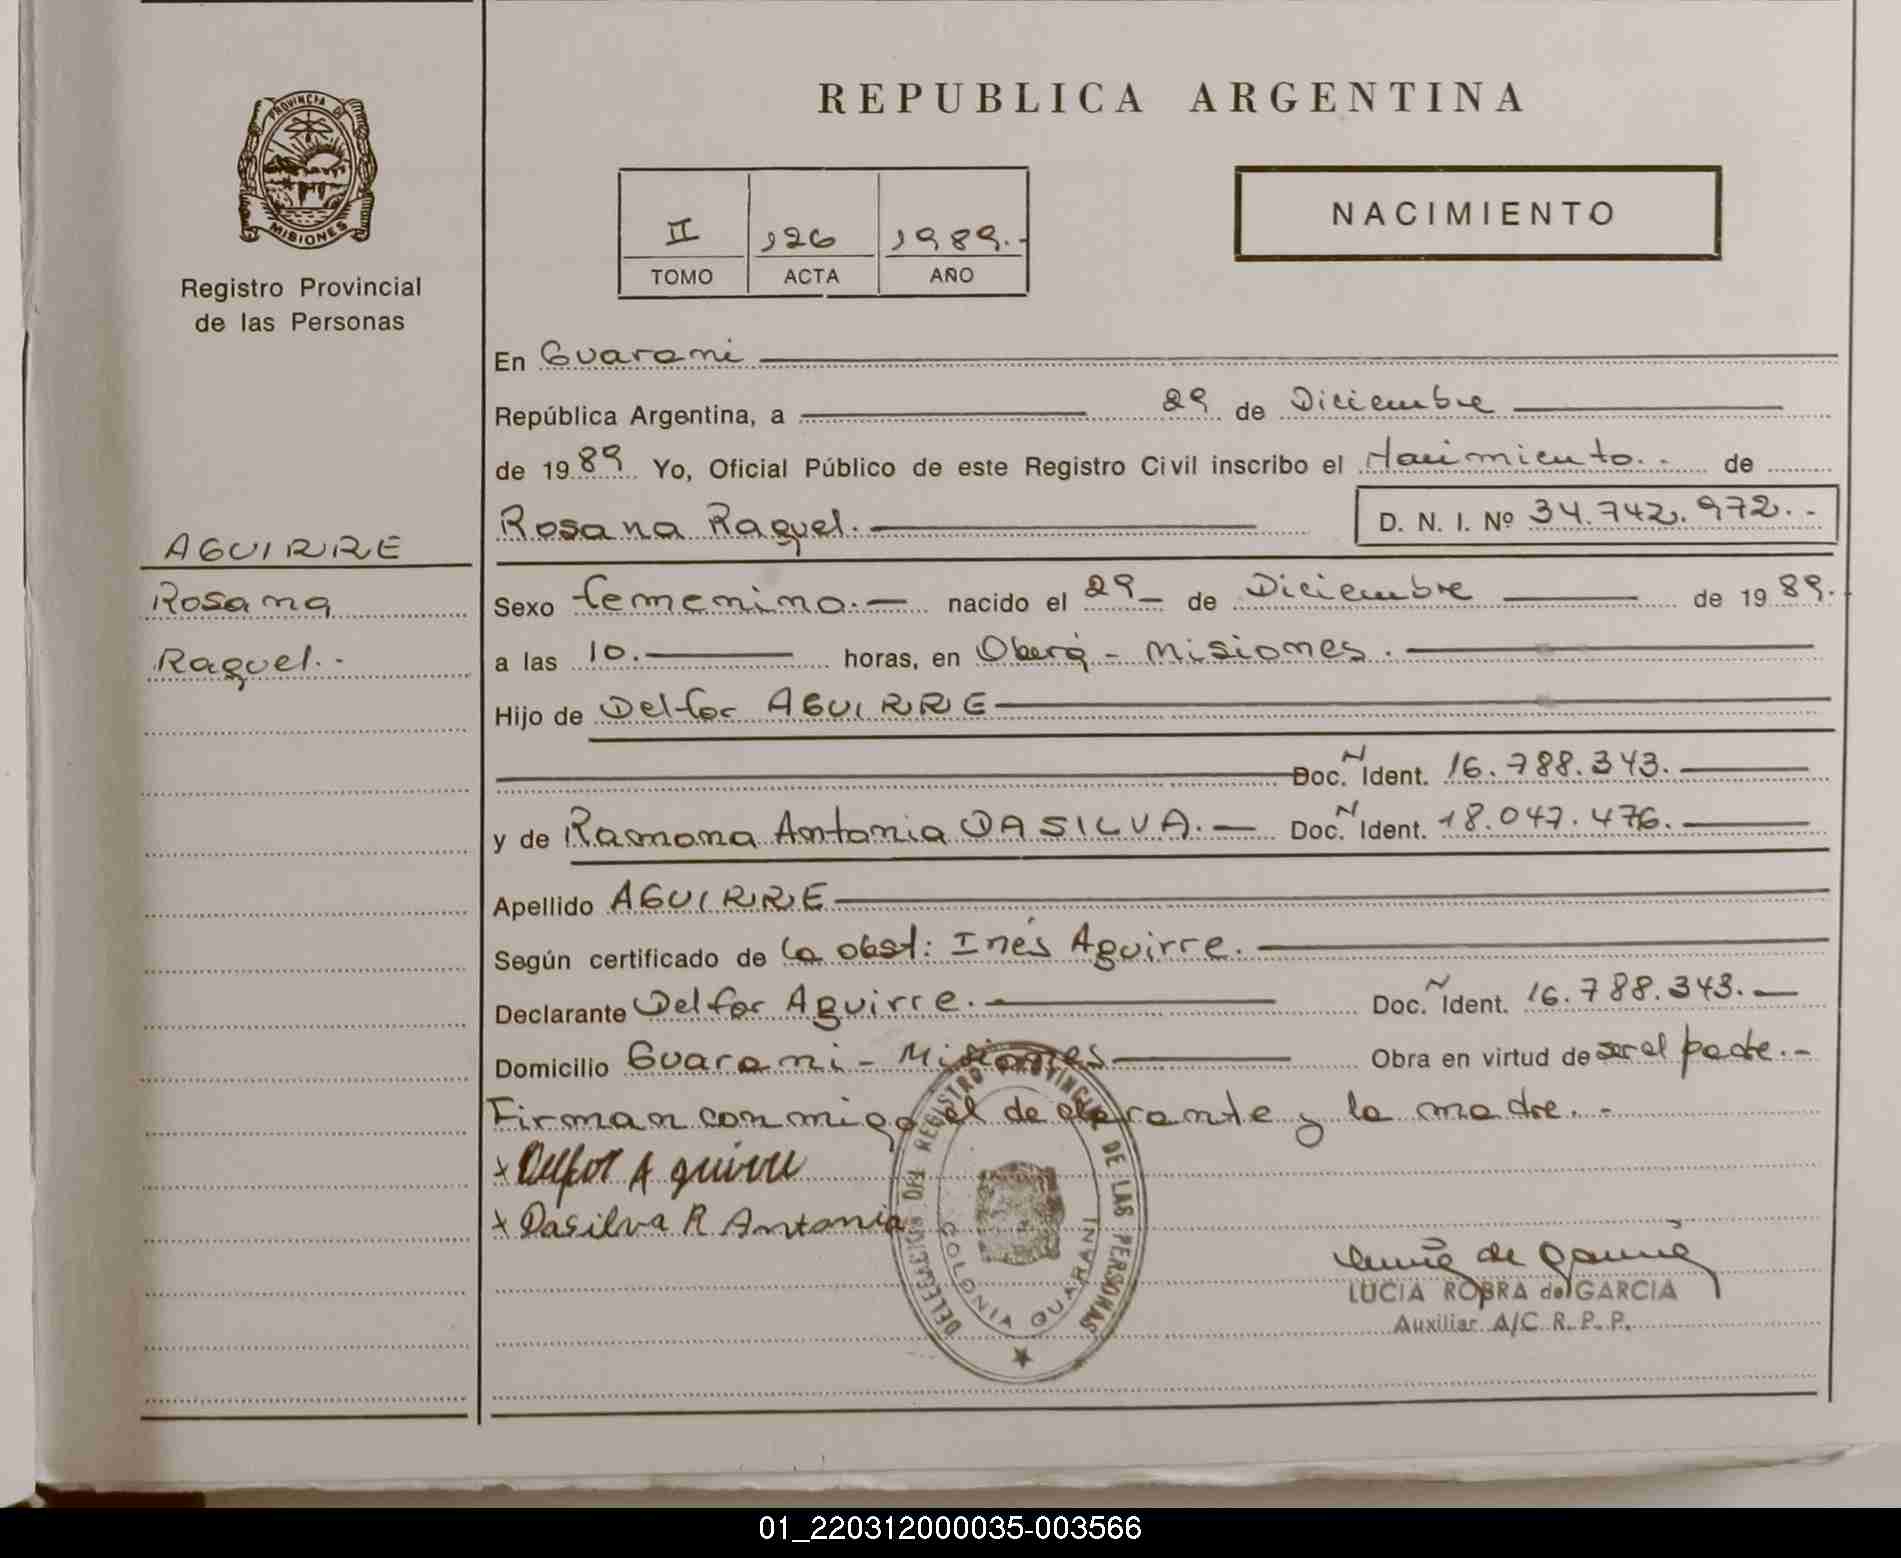 PROVINCIA DE
MISIONES
Registro Provincial
de las Personas
AGUIRRE
Rosana
Raquel.-
REPUBLICA ARGENTINA
II 126 1989.-
TOMO ACTA AÑO
NACIMIENTO
En Guarani
República Argentina, a 29 de Diciembre
de 1989 Yo, Oficial Público de este Registro Civil inscribo el Nacimiento.- de
Rosana Raquel. D. N. I. Nº 34.742.972.-
Sexo femenino.- nacido el 29 de Diciembre de 1989.
a las 10. horas, en Oberá - Misiones.
Hijo de Delfor AGUIRRE
Doc. N Ident. 16.788.343.
y de Ramona Antonia DASILVA.- Doc. N Ident. 18.047.476.
Apellido AGUIRRE
Según certificado de la obst: Inés Aguirre.
Declarante Delfor Aguirre. Doc. N Ident. 16.788.343.-
Domicilio Guarani - Misiones Obra en virtud de ser el padre.-
Firman conmigo el declarante y la madre.-
x Delfor Aguirre
x Dasilva R Antonia
DELEGACION DEL REGISTRO PROVINCIAL DE LAS PERSONAS
COLONIA GUARANI
LUCIA ROBRA de GARCIA
Auxiliar A/C R. P. P.
01_220312000035-003566